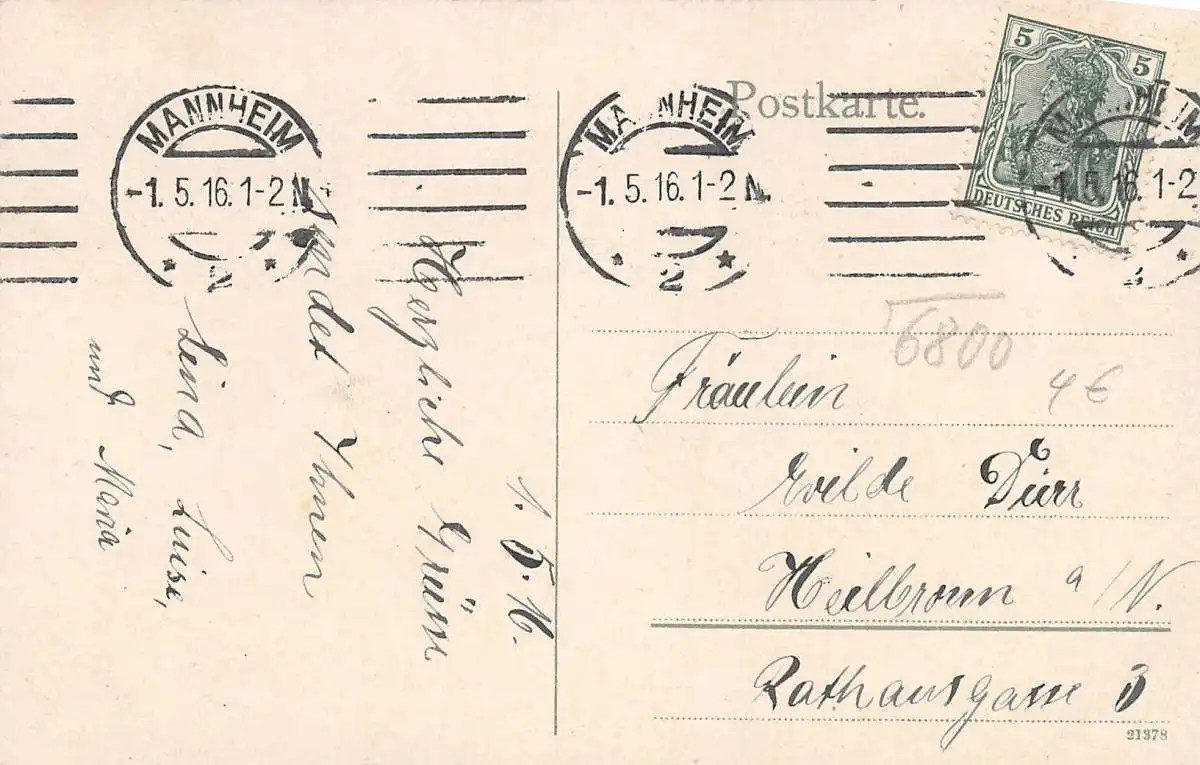 Postkarte.
5 5
DEUTSCHES REICH
MANNHEIM
-1.5.16.1-2 N.
* 2 *
MANNHEIM
-1.5.16.1-2 N.
* 2 *
-1.5.16.1-2
6800
4 €
1. 5. 16.
Herzliche Grüsse
sendet Ihnen
Lina, Luise,
und Maria
Fräulein
Dürr
Heilbronn a/N.
Rathausgasse 3
21378